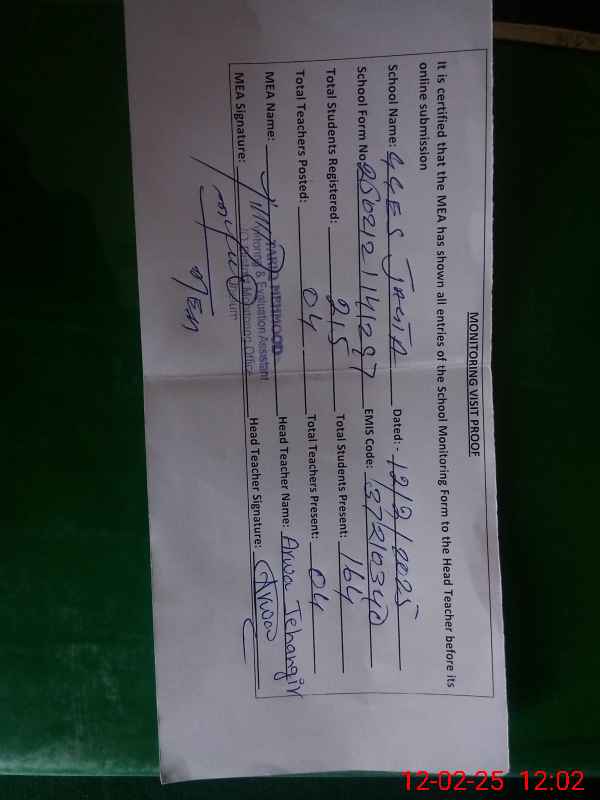 MONITORING VISIT PROOF
It is certified that the MEA has shown all entries of the School Monitoring Form to the Head Teacher before its
online submission
School Name: GGES JASIA Dated:- 12/2/2025
School Form No: 2502121141297 EMIS Code: 37210340
Total Students Registered: 215 Total Students Present: 164
Total Teachers Posted: 04 Total Teachers Present: 04
MEA Name: Head Teacher Name: Arwa Jehangir
TARIQ MEHMOOD
Monitoring & Evaluation Assistant
MEA Signature: Head Teacher Signature: Arwa
MEA
12-02-25 12:02